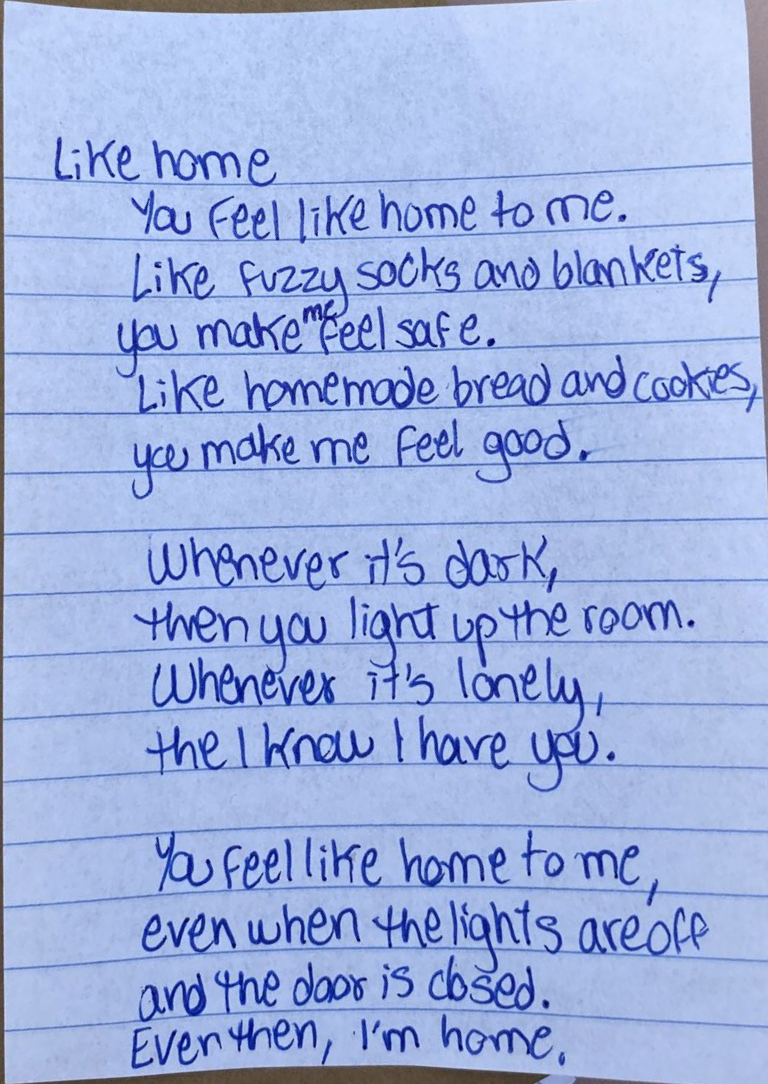 Like home
You feel like home to me.
Like fuzzy socks and blankets,
you make me feel safe.
Like homemade bread and cookies,
you make me feel good.
Whenever it's dark,
then you light up the room.
Whenever it's lonely,
the I know I have you.
You feel like home to me,
even when the lights are off
and the door is closed.
Even then, I'm home.